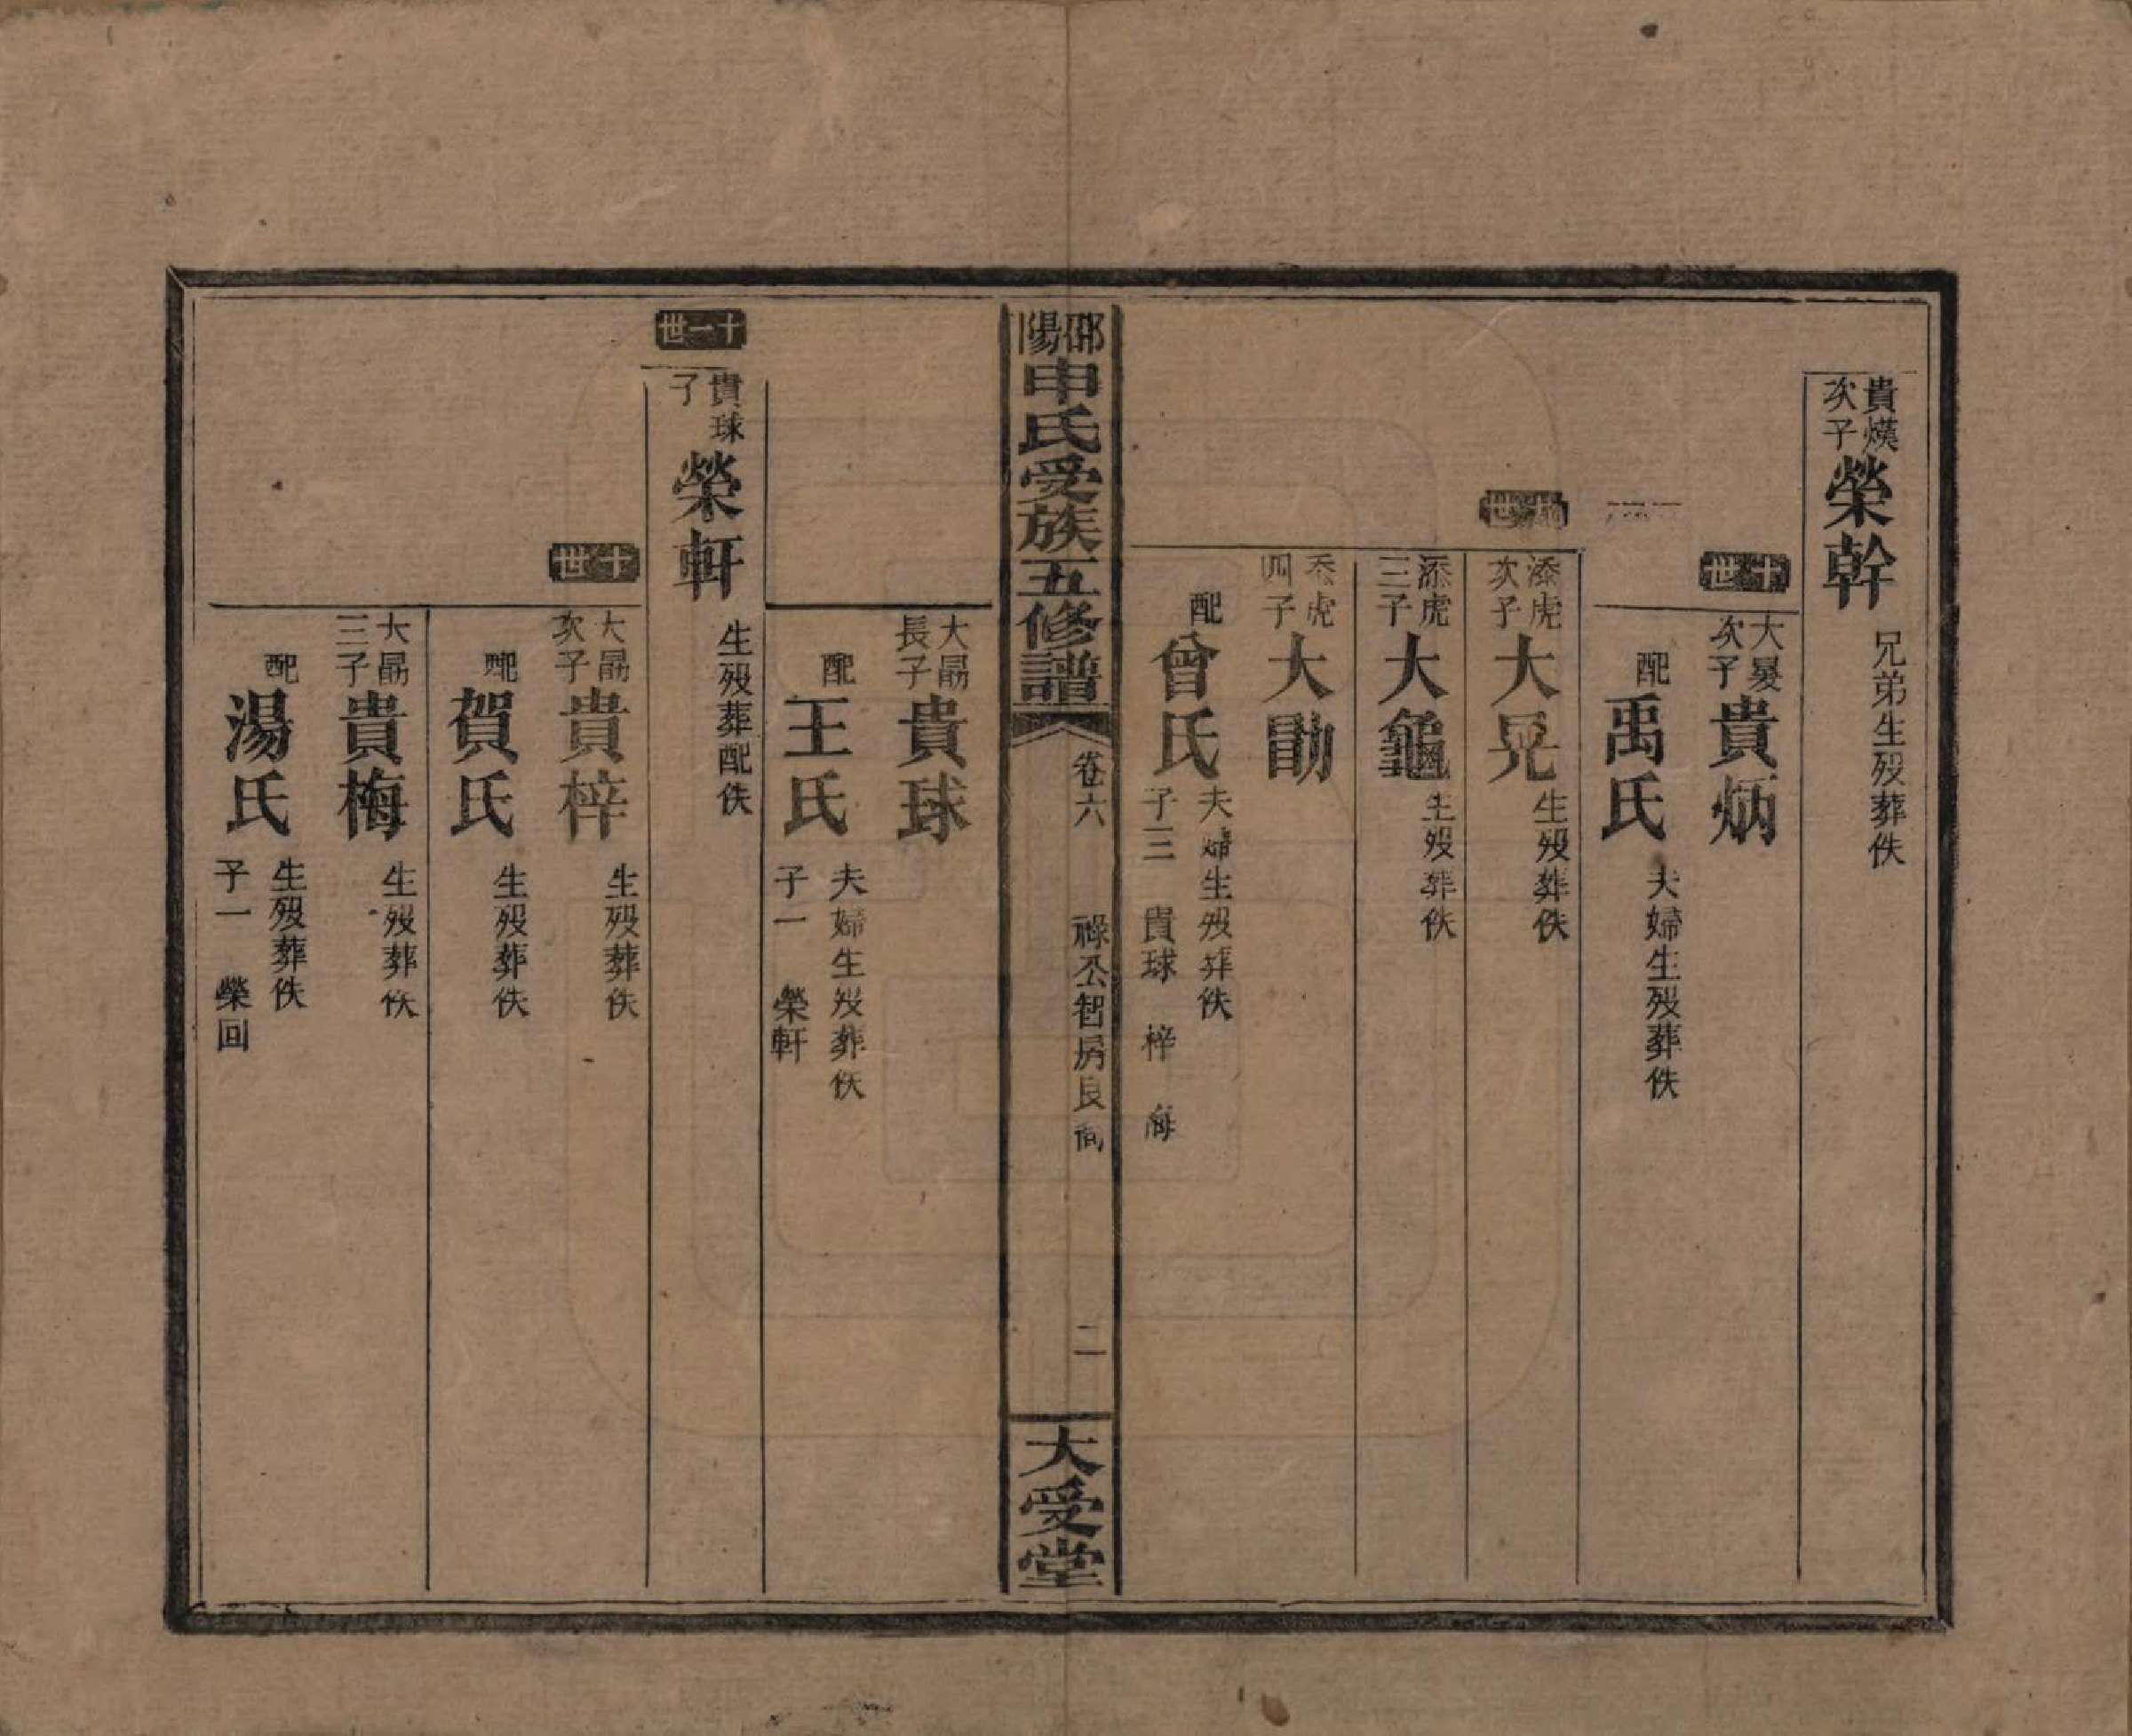 貴熯次子榮幹 兄弟生殁葬佚
十世
大晸次子貴炳
配禹氏 夫婦生殁葬佚
世
添虎次子大晃 生殁葬佚
添虎三子大龜 生殁葬佚
添虎四子大勖
配曾氏 夫婦生殁葬佚
子三 貴球 梓 梅
邵陽申氏受族五修譜 卷六 祿公智房良 二 大受堂
大勖長子貴球
配王氏 夫婦生殁葬佚
子一 榮軒
十一世
貴球子榮軒 生殁葬配佚
十世
大勖次子貴梓 生殁葬佚
配賀氏 生殁葬佚
大勖三子貴梅 生殁葬佚
配湯氏 生殁葬佚
子一 榮回